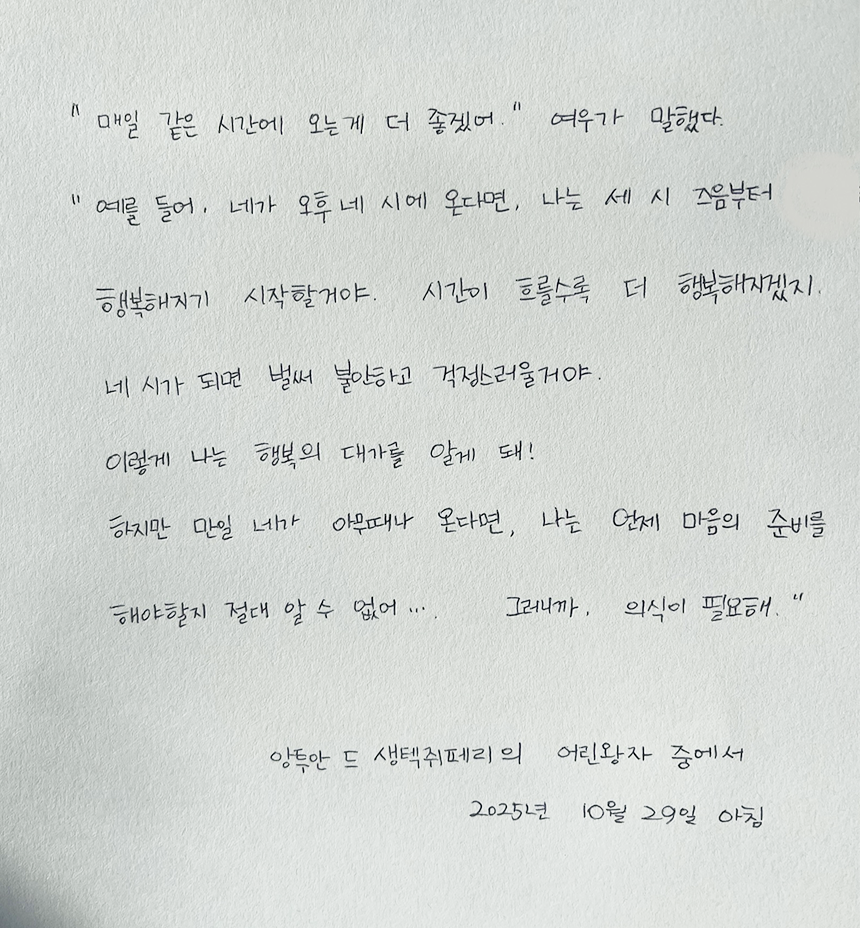 " 매일 같은 시간에 오는게 더 좋겠어." 여우가 말했다.
" 예를 들어, 네가 오후 네 시에 온다면, 나는 세 시 즈음부터
행복해지기 시작할거야. 시간이 흐를수록 더 행복해지겠지.
네 시가 되면 벌써 불안하고 걱정스러울거야.
이렇게 나는 행복의 대가를 알게 돼!
하지만 만일 네가 아무때나 온다면, 나는 언제 마음의 준비를
해야할지 절대 알 수 없어.... 그러니까, 의식이 필요해."
앙투안 드 생텍쥐페리의 어린왕자 중에서
2025년 10월 29일 아침